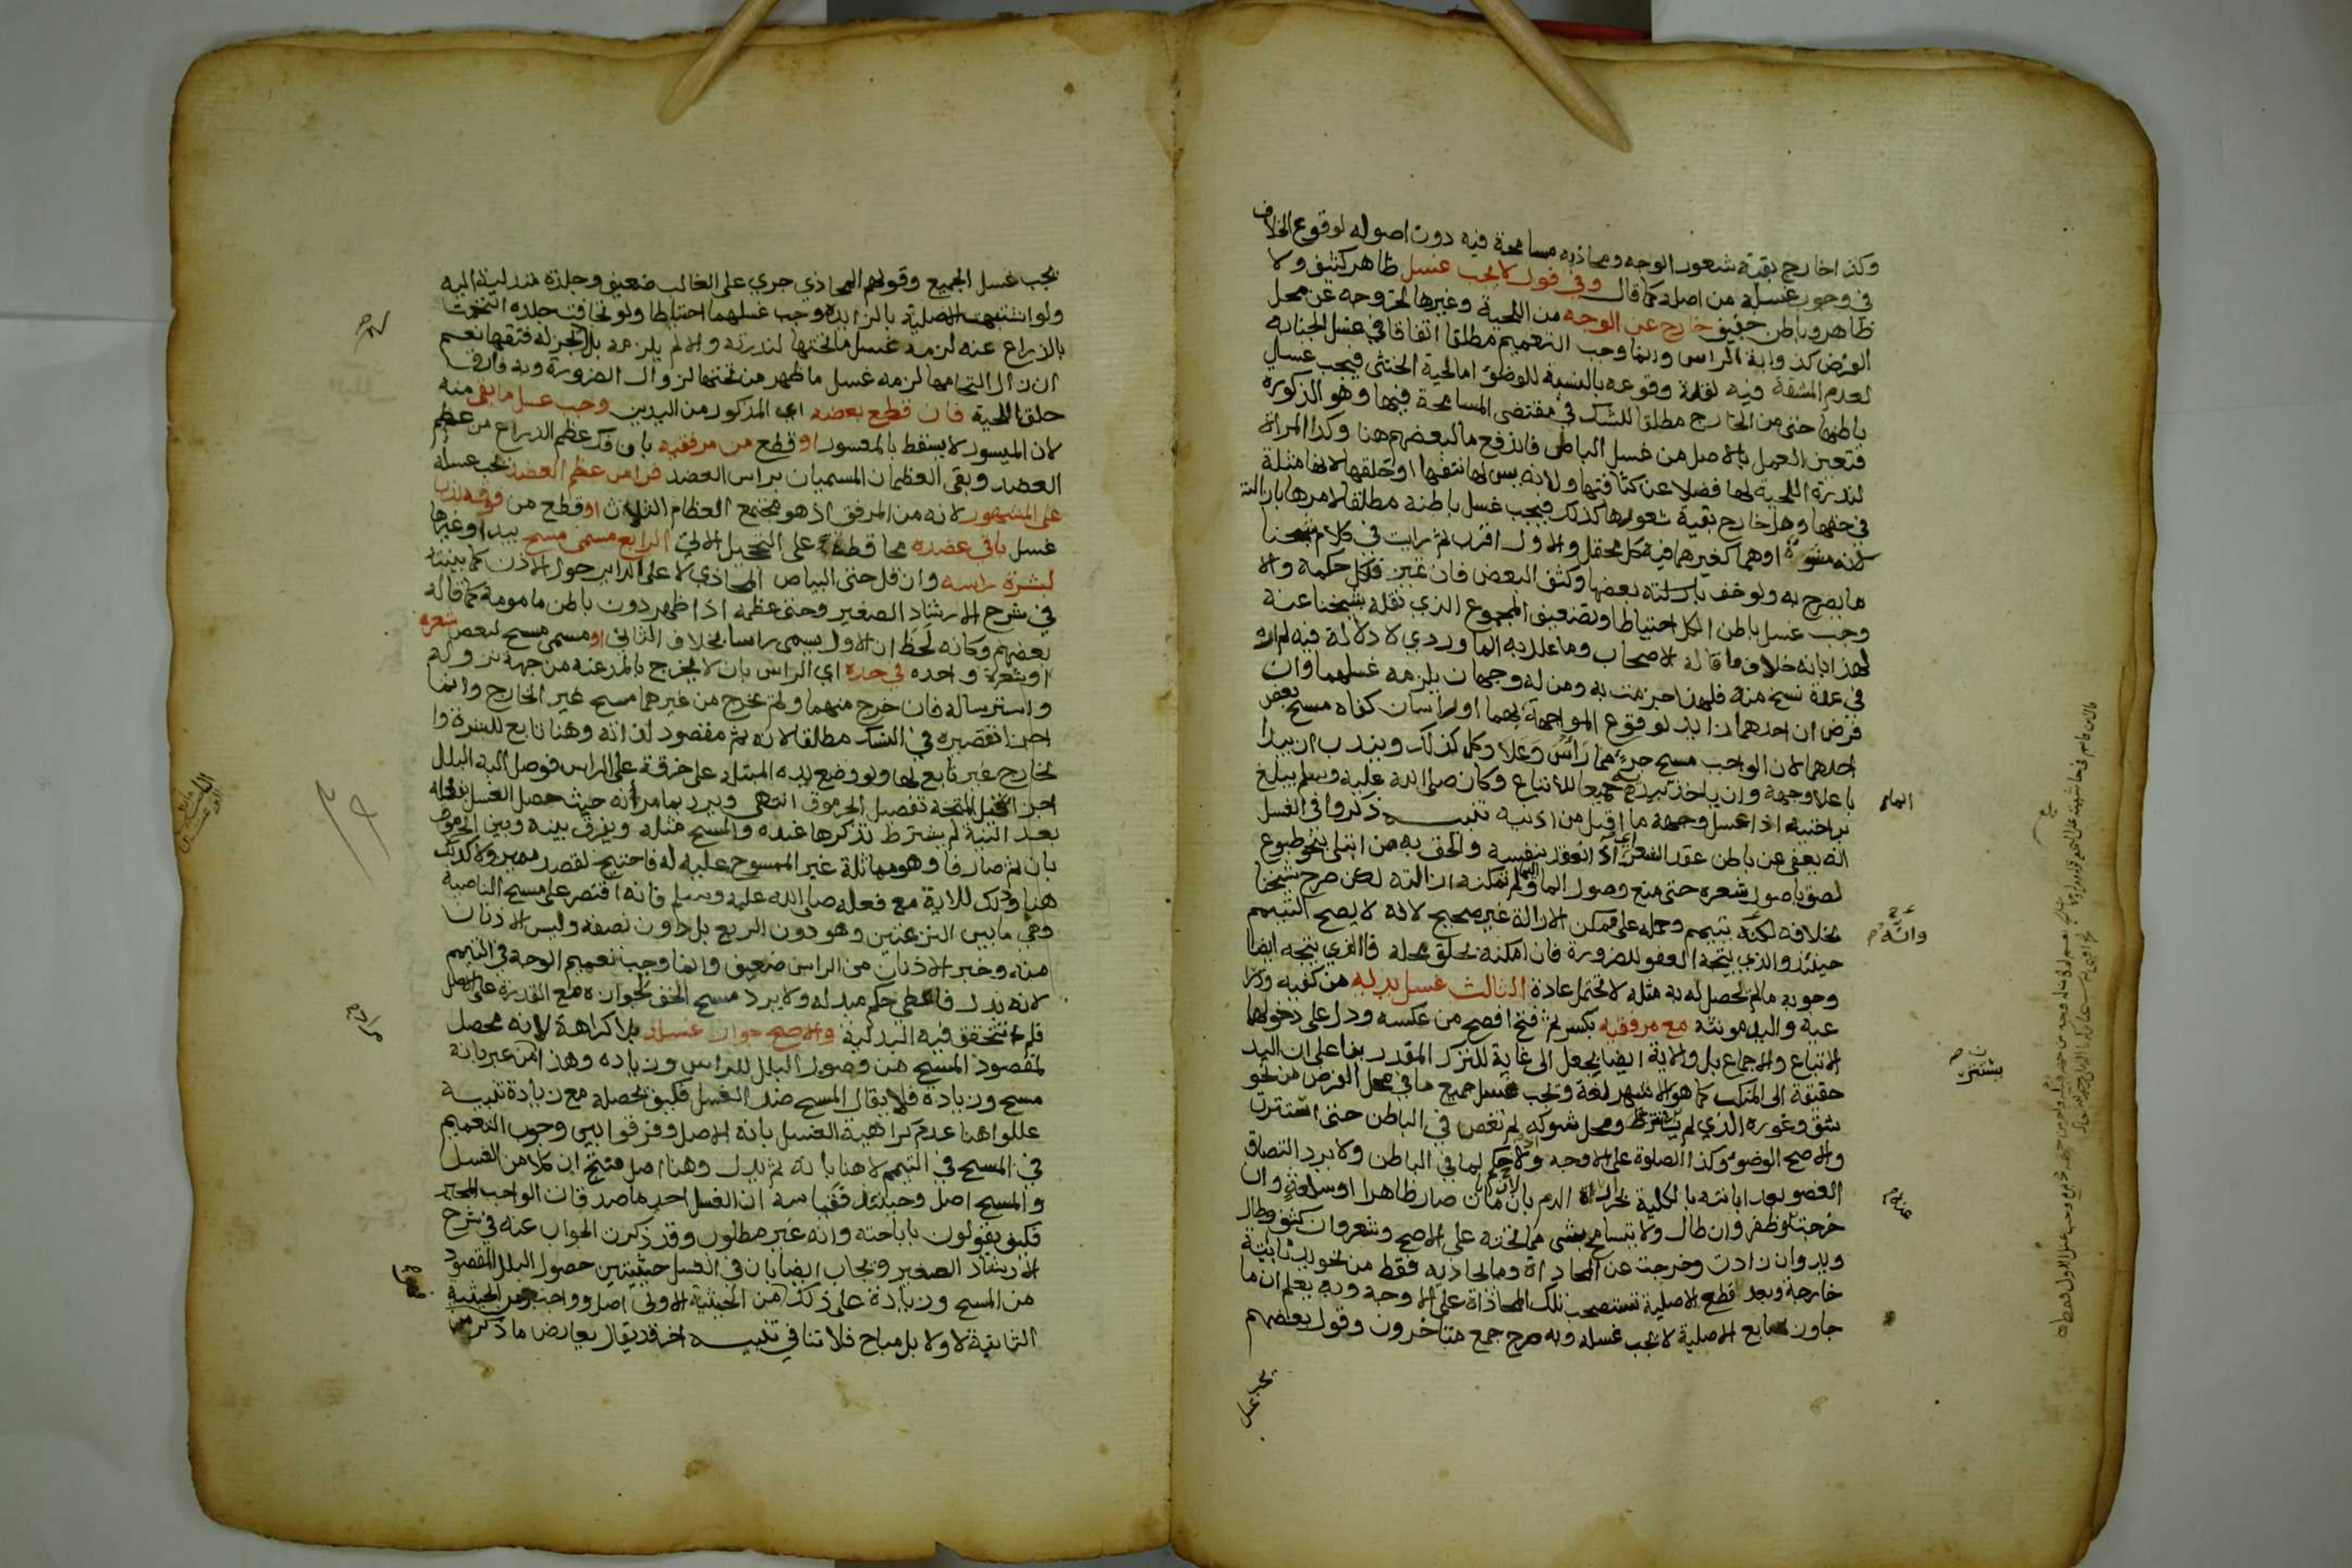 وكذا خارج بقية شعور الوجه ومحاذيه مسامحة فيه دون اصوله لوقوع الخلاف
في وجوب غسله من اصله كما قال وفي قول لا يجب غسل ظاهر كثيف ولا
ظاهر وباطن خفيف خارج عن الوجه من اللحية وغيرها لخروجه عن محل
الفرض كذوابة الراس وانما وجب التعميم مطلقا اتفاقا في غسل الجنابة
لعدم المشقة فيه لقلة وقوعه بالنسبة للوضو اما لحية الخنثى فيجب غسل
باطنها حتى من الخارج مطلقا للشك في مقتضى المسامحة فيها وهو الذكورة
فتعين العمل بالاصل من غسل الباطن فاندفع ما لبعضهم هنا وكذا المراة
لندرة اللحية لها فضلا عن كثافتها ولانه يسن لها نتفها او حلقها لانها مثلة
في حقها وهل خارج بقية شعورها كذلك فيجب غسل باطنه مطلقا لامرها بازالته
لانه مشوه او هما كغيرهما فيه كل محتمل والاول اقرب ثم رايت في كلام شيخنا
ما يصرح به ولو خف بعضها وكثف البعض فان تميز فلكل حكمه والا
وجب غسل باطن الكل احتياطا وتضعيف المجموع الذي نقله شيخنا عنه
لهذا بانه خلاف ما قاله الاصحاب وما علله به الماوردي لا دلالة فيه لم اره
في عدة نسخ منه فلهذا جزمت به ومن له وجهان يلزمه غسلهما وان
فرض ان احدهما زايد لوقوع المواجهة بهما او راسان كفاه مسح بعض
احدهما لان الواجب مسح جزء مما راس وعلا وكل كذلك ويندب ان يبدا
باعلا وجهه وان ياخذ بيديه جميعا للاتباع وكان صلى الله عليه وسلم يبلغ
براحتيه اذا غسل وجهه ما اقبل من اذنيه تنبيه ذكروا في الغسل
انه يعفى عن باطن عقد الشعر اي اذا انعقد بنفسه والحق به من ابتلى بنحو طبوع
لصق باصول شعره حتى منع وصول الما ولم تمكنه ازالته لكن صرح شيخنا
بخلافه لكنه يتيمم وحمله على ممكن الازالة غير صحيح لانه لا يصح التيمم
حينئذ والذي يتجه العفو للضرورة فان امكنه بحلق محله فالذي يتجه ايضا
وجوبه ما لم يحصل له به مثله لا تحتمل عادة الثالث غسل يديه من كفيه وذرا
عيه واليد مونثة مع مرفقيه بكسر ثم فتح افصح من عكسه ودل على دخولهما
الاتباع والاجماع بل والاية ايضا بجعل الى غاية للترك المقدر بنا على ان اليد
حقيقة الى المنكب كما هو الاشهر لغة وتجب غسل جميع ما في محل الفرض من نحو
شق وغوره الذي لم يستتر ومحل شوكه لم تغص في الباطن حتى استترت
والاصح الوضو وكذا الصلوة على الاوجه اذ لا حكم لما في الباطن ولا يرد التصاق
العضو بعد ابانته بالكلية بحرارة الدم لان ما بان صار ظاهرا او سلعة وان
خرجت وظفر وان طال ولا يتسامح بشي مما تحته على الاصح وشعر وان كثف وطال
ويد وان زادت وخرجت عن المحاذاة ومالا يحاذيه فقط من نحو يد نابتة
خارجه وبعد قطع الاصلية تستصحب تلك المحاذاة على الاوجه وبه يعلم ان ما
جاوز اصابع الاصلية لا يجب غسله وبه صرح جمع متاخرون وقول بعضهم
يجب غسل
يجب غسل الجميع وقولهم المحاذي جري على الغالب ضعيف وجلدة متدلية اليه
ولو اشتبهت الاصلية بالزايدة وجب غسلهما احتياطا ولو تجافت جلدة التحمت
بالذراع عنه لزمه غسل ما تحتها لندرته والا لم يلزمه بل لم يجز له فتقها نعم
ان زال التحامها لزمه غسل ما ظهر من تحتها لزوال الضرورة وبه فارق
حلق اللحية فان قطع بعضه اي المذكور من اليدين وجب غسل ما بقى منه
لان الميسور لا يسقط بالمعسور او قطع من مرفقيه بان فك عظم الذراع من عظم
العضد وبقى العظمان المسميان براس العضد فراس عظم العضد يجب غسله
على المشهور لانه من المرفق اذ هو مجتمع العظام الثلاث او قطع من فوقه ندب
غسل باقي عضده محافظة على التحجيل الاتي الرابع مسمى مسح بيد او غيرها
لبشرة راسه وان قل حتى البياض المحاذي لاعلى الداير حول الاذن كما بينته
في شرح الارشاد الصغير وحتى عظمه اذا ظهر دون باطن مامومة كما قاله
بعضهم وكانه لحظ ان الاول يسمى راسا بخلاف الثاني او مسمى مسح لبعض شعره
او شعرة واحده في حده اي الراس بان لا يخرج بالمد عنه من جهة نزوله
واسترساله فان خرج منهما ولم يخرج من غيرهما مسح غير الخارج وانما
اجزا تقصيره في النسك مطلقا لانه ثم مقصود لذاته وهنا تابع للبشرة وا
لخارج غير تابع لها ولو وضع يده المبتلة على خرقة على الراس فوصل اليه البلل
اجزا قيل المتجه تفصيل الجرموق انتهى ويرد بما مر انه حيث حصل الغسل بفعله
بعد النية لم يشترط تذكرها عنده والمسح مثله ويفرق بينه وبين الجرموق
بان ثم صارفا وهو مماثلة غير الممسوح عليه له فاحتيج لقصد مميز ولا كذلك
هنا وذلك للاية مع فعله صلى الله عليه وسلم فانه اقتصر على مسح الناصية
وهي ما بين النزعتين وهو دون الربع بل دون نصفه وليس الاذنان
منه وخبر الاذنان من الراس ضعيف وانما وجب تعميم الوجه في التيمم
لانه بدل فاعطي حكم مبدله ولا يرد مسح الخف لجوازه مع القدرة على الاصل
فلم تتحقق فيه البدلية والاصح جواز غسله بلا كراهة لانه محصل
لمقصود المسح من وصول البلل للراس وزياده وهذا من عبر بانه
مسح وزيادة فلا يقال المسح ضد الغسل فكيف يحصله مع زيادة تنبيه
عللوا هنا عدم كراهية الغسل بانه الاصل وفرقوا بين وجوب التعميم
في المسح في التيمم لا هنا بانه ثم بدل وهنا اصل فنتج ان كلا من الغسل
والمسح اصل وحينئذ فقياسه ان الغسل احد ما صدقات الواجب المخير
فكيف يقولون باباحته وانه غير مطلوب وقد ذكرت الجواب عنه في شرح
الارشاد الصغير ويجاب ايضا بان في الغسل حيثيتين حصول البلل المقصود
من المسح وزيادة على ذلك من الحيثية الاولى اصل وواجب ومن الحيثية
الثانية لا ولا بل مباح فلا تنافي تنبيه اخر قد يقال يعارض ما ذكر من